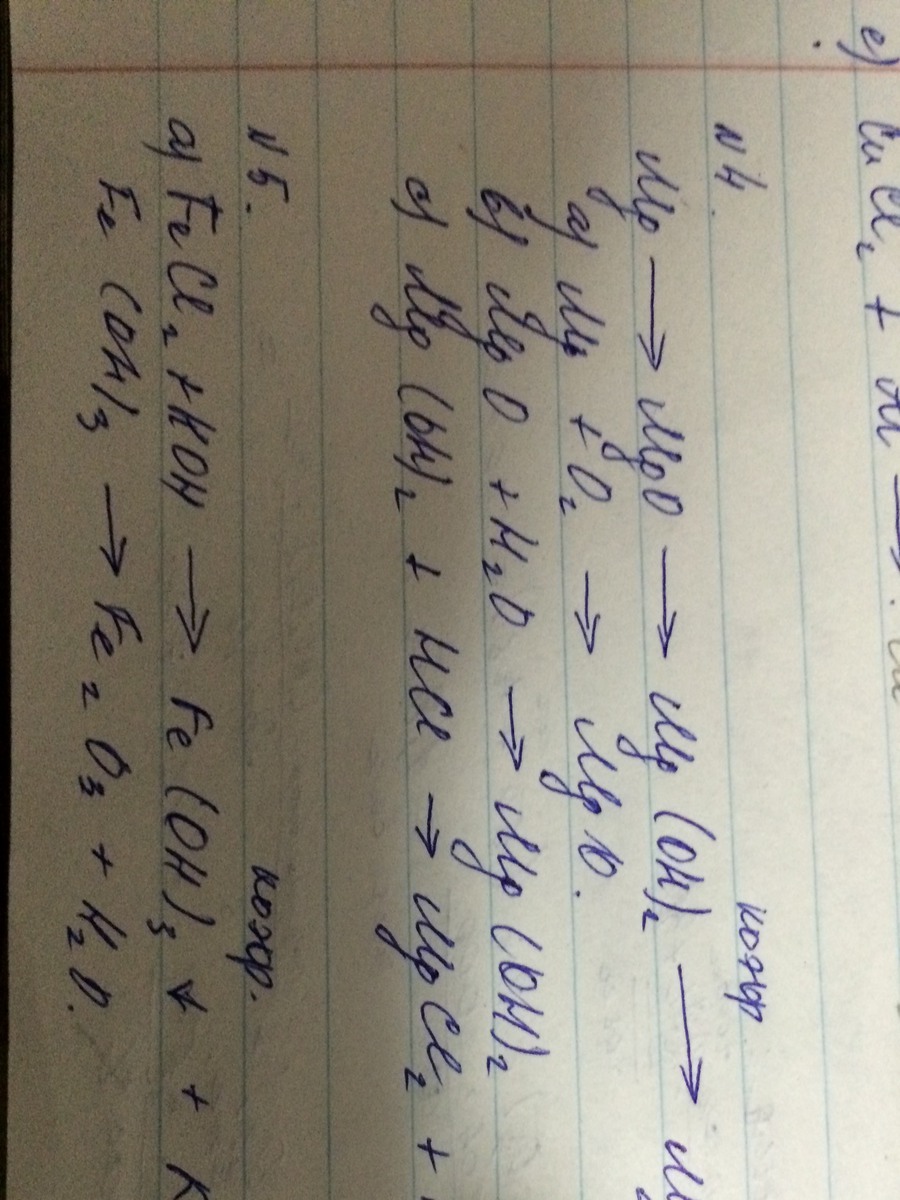 e) CuCl₂ + Al →
N 4. коэф
Mg → MgO → Mg(OH)₂ →
a) Mg + O₂ → MgO.
в) MgO + H₂O → Mg(OH)₂
c) Mg(OH)₂ + HCl → MgCl₂ +
N 5. коэф.
a) FeCl₂ + HOH → Fe(OH)₃ ↓ + K
Fe(OH)₃ → Fe₂O₃ + H₂O.